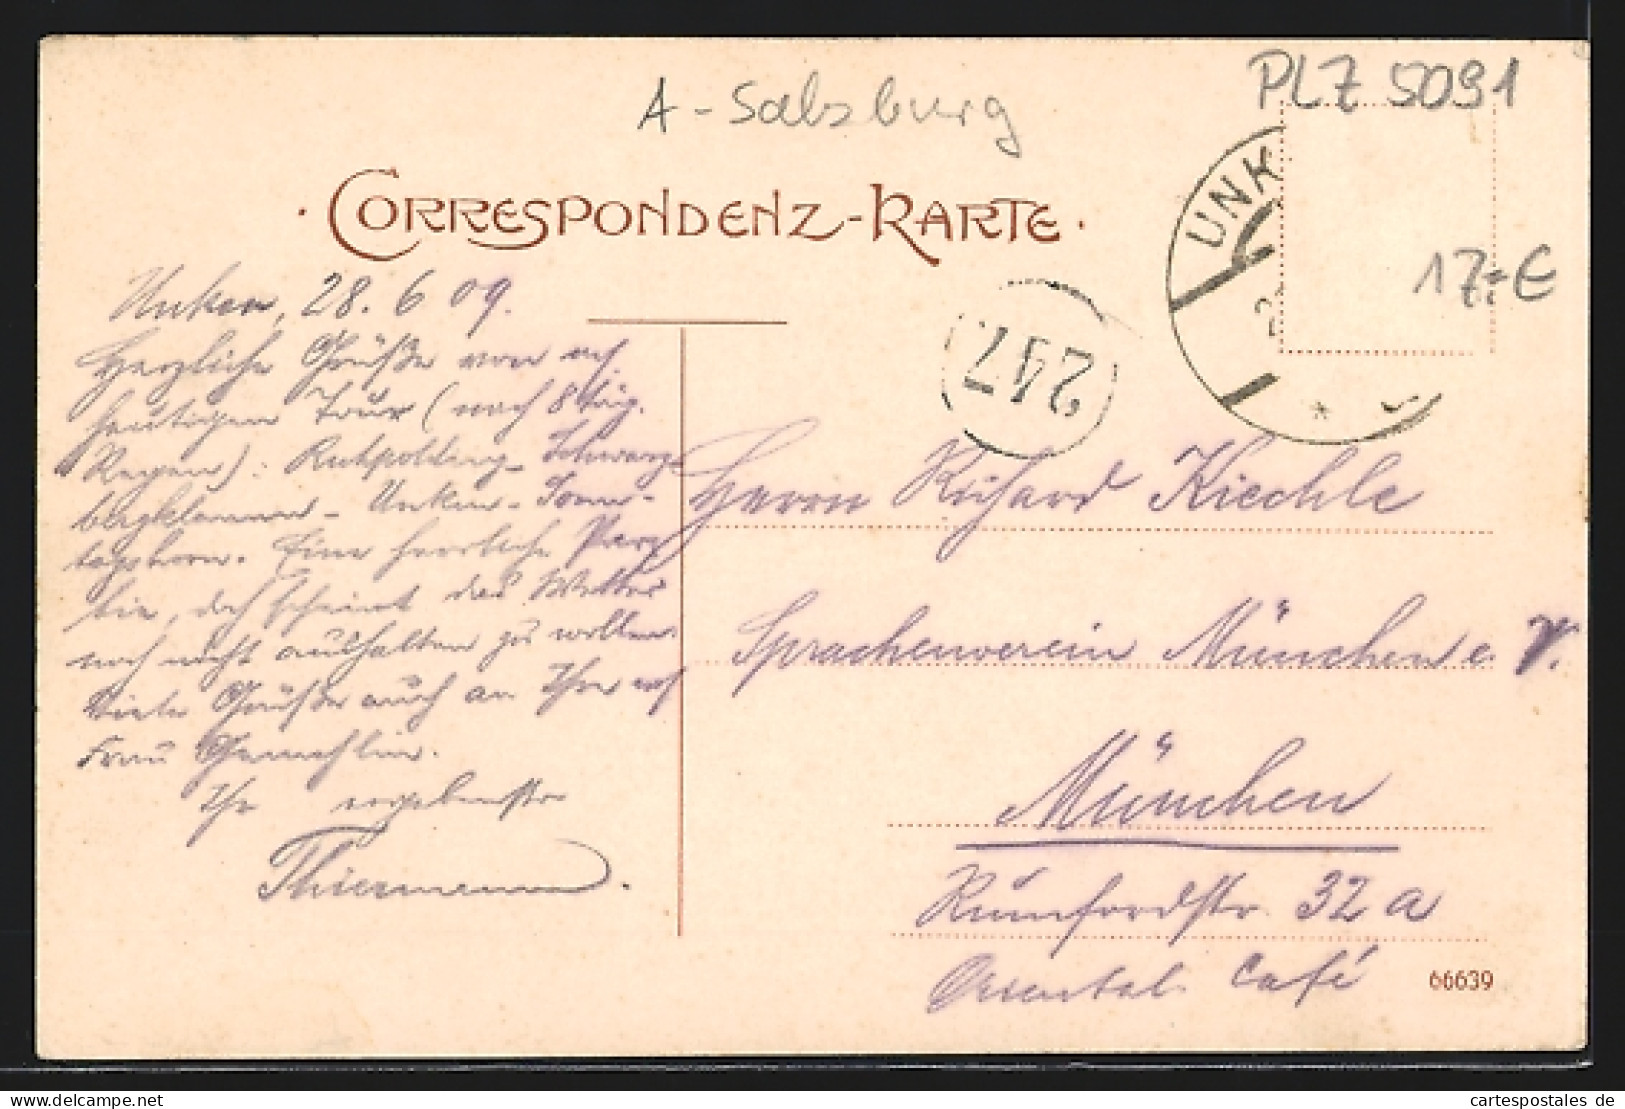 A-Salzburg
PLZ 5091
· CORRESPONDENZ-KARTE ·
UNK
17.-€
247
Unken, 28. 6 09.
Herzliche Grüße von
heutigen Tour (nach 8 täg.
Regen): Ruhpolding - Schwarz-
bergklamm - Unken - Sonn-
tagshorn. Eine herrliche Par-
tie, doch scheint das Wetter
noch nicht aushalten zu wollen.
Viele Grüße auch an Ihre
Frau Gemahlin.
Ihr ergebenster
Thiermann.
Herrn Richard Kiechle
Sprachenverein München e. V.
München
Rumfordstr. 32 a
Oriental. Café
66639
www.cartespostales.eu
cartespostales de